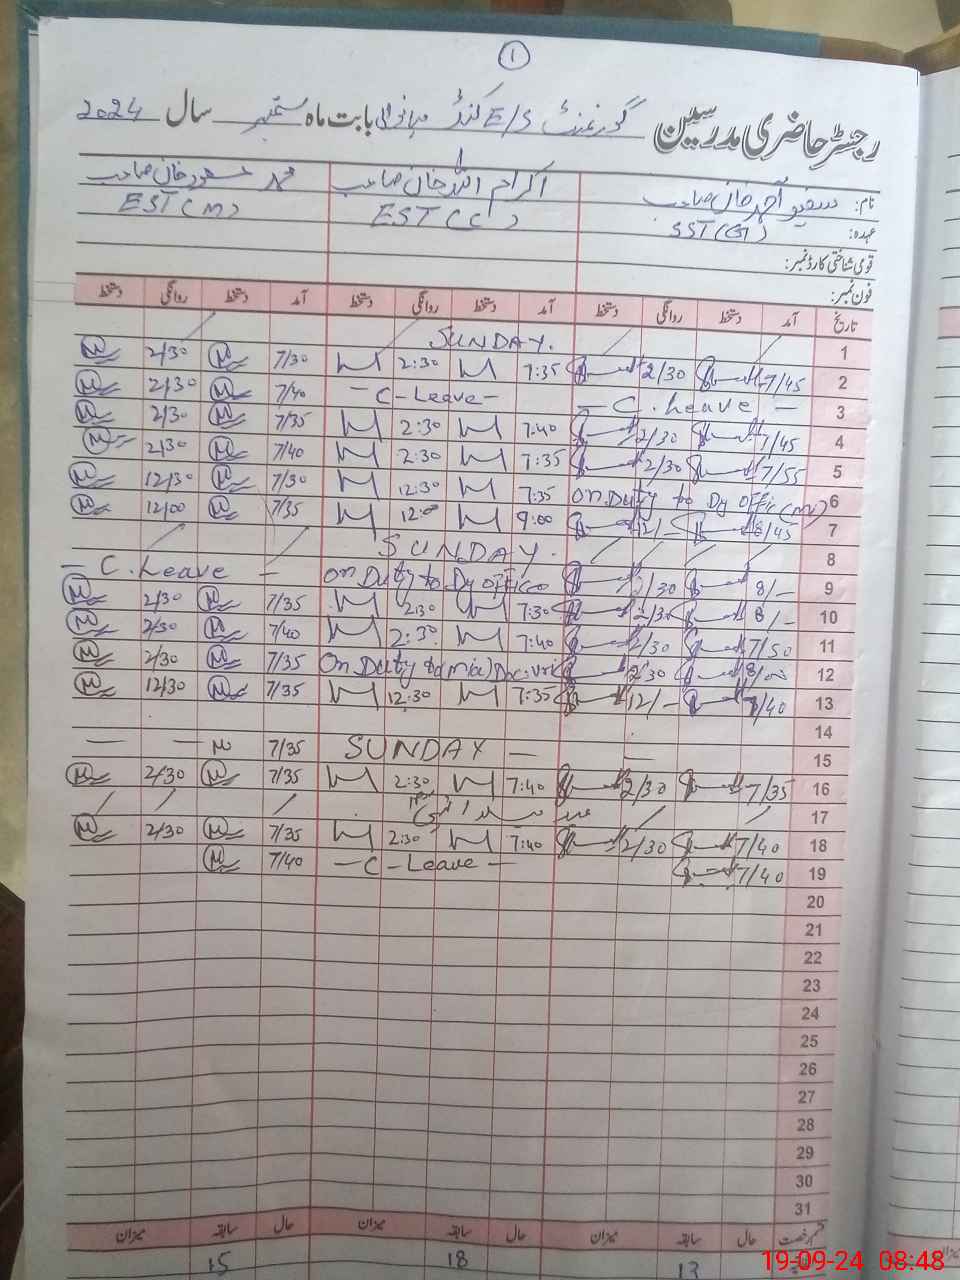 1
رجسٹر حاضری مدرسین گورنمنٹ E/S کنڈ میانوالی بابت ماہ ستمبر سال 2024
نام: آحمد خان صاحب اکرام اللہ خان صاحب محمد مسعود خان صاحب
عہدہ: SST(G) EST(C) EST(M)
قومی شناختی کارڈ نمبر:
فون نمبر:
تاریخ آمد دستخط روانگی دستخط آمد دستخط روانگی دستخط آمد دستخط روانگی دستخط
1 SUNDAY.
2 7/45 2/30 7:35 2:30 7/30 2/30
3 - C. Leave - - C - Leave - 7/40 2/30
4 7/45 2/30 7:40 2:30 7/35 2/30
5 7/55 2/30 7:35 2:30 7/40 2/30
6 On Duty to Dy offic(m) 7:35 12:30 7/30 12/30
7 8/45 12/- 9:00 12:00 7/35 12/00
8 SUNDAY.
9 8/- 2/30 On Duty to Dy office - C. Leave -
10 8/- 2/30 7:30 2:30 7/35 2/30
11 7/50 2/30 7:40 2:30 7/40 2/30
12 8/00 2/30 On Duty to 7/35 2/30
13 7/40 12/- 7:35 12:30 7/35 12/30
14
15 SUNDAY - 7/35 - -
16 7/35 2/30 7:40 2:30 7/35 2/30
17 عید میلاد النبی
18 7/40 2/30 7:40 2:30 7/35 2/30
19 7/40 - C - Leave - 7/40
20
21
22
23
24
25
26
27
28
29
30
31
قسم رخصت حال سابقہ میزان حال سابقہ میزان حال سابقہ میزان
13 18 15
19-09-24 08:48